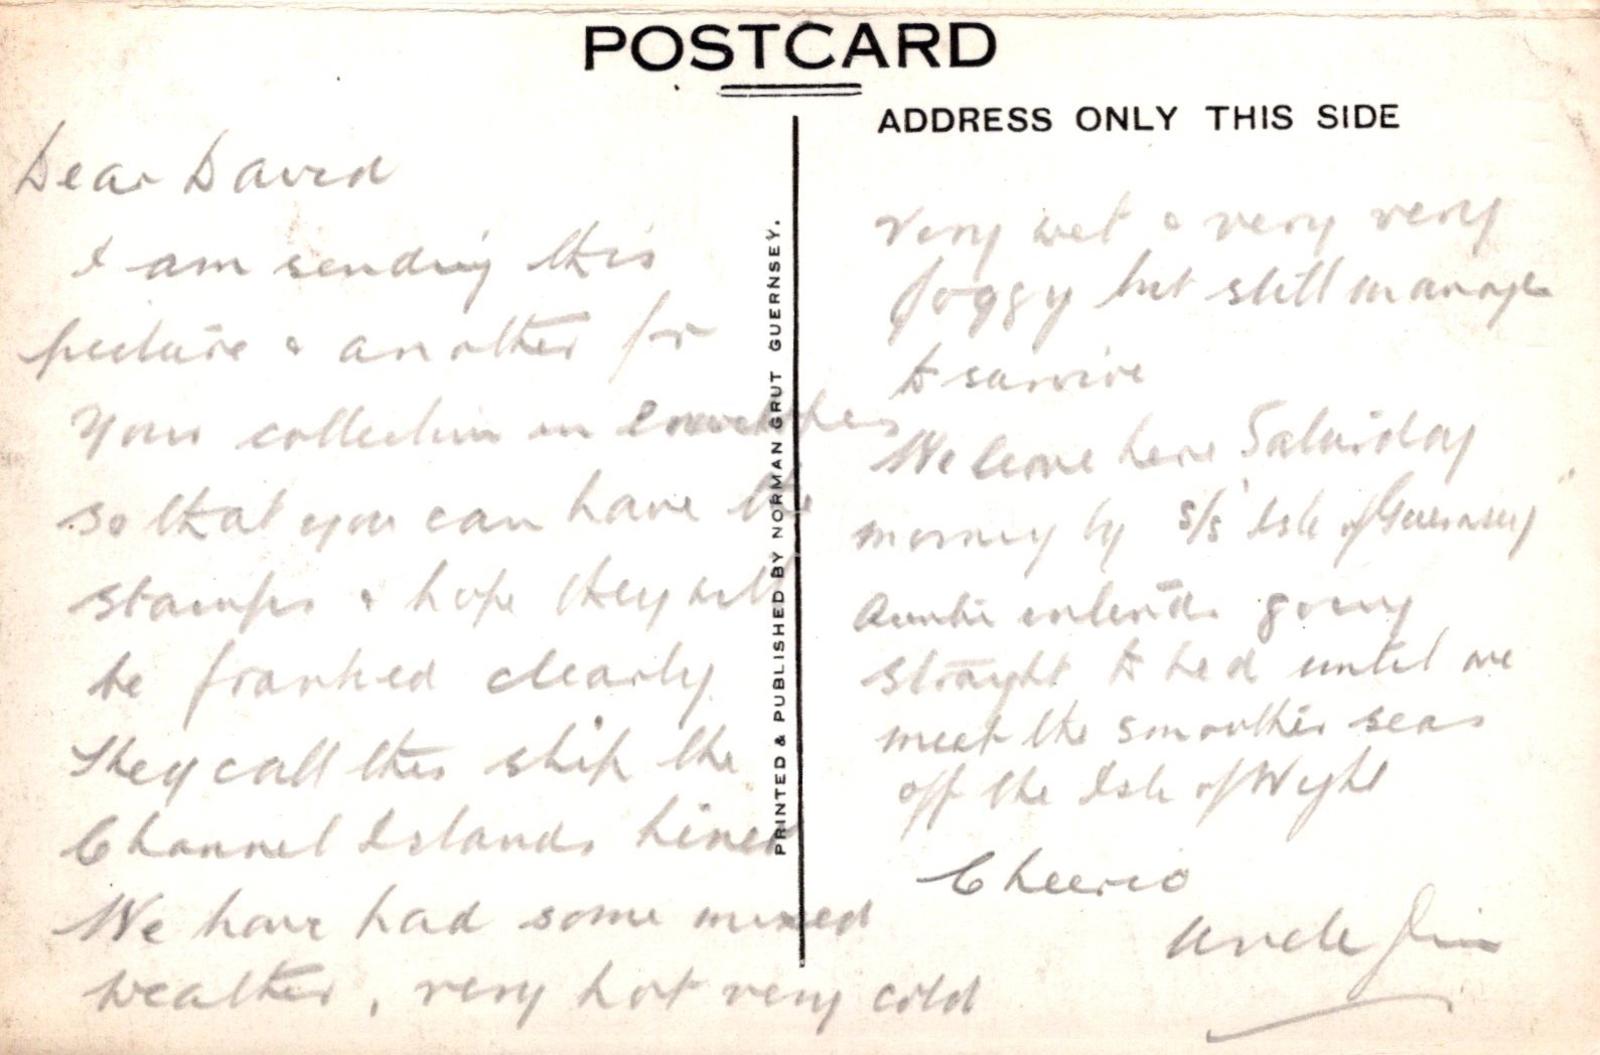 POSTCARD
ADDRESS ONLY THIS SIDE
Dear David
I am sending this
picture & another for
your collection in Envelopes
so that you can have the
stamps & hope they will
be franked clearly
They call this ship the
Channel Islands Liner
We have had some mixed
weather, very hot very cold
very wet & very very
foggy but still manage
to survive
We leave here Saturday
morning by s/s "Isle of Guernsey"
Auntie intends going
straight to bed until we
meet the smoother seas
off the Isle of Wight
Cheerio
Uncle Jim
PRINTED & PUBLISHED BY NORMAN GRUT GUERNSEY.